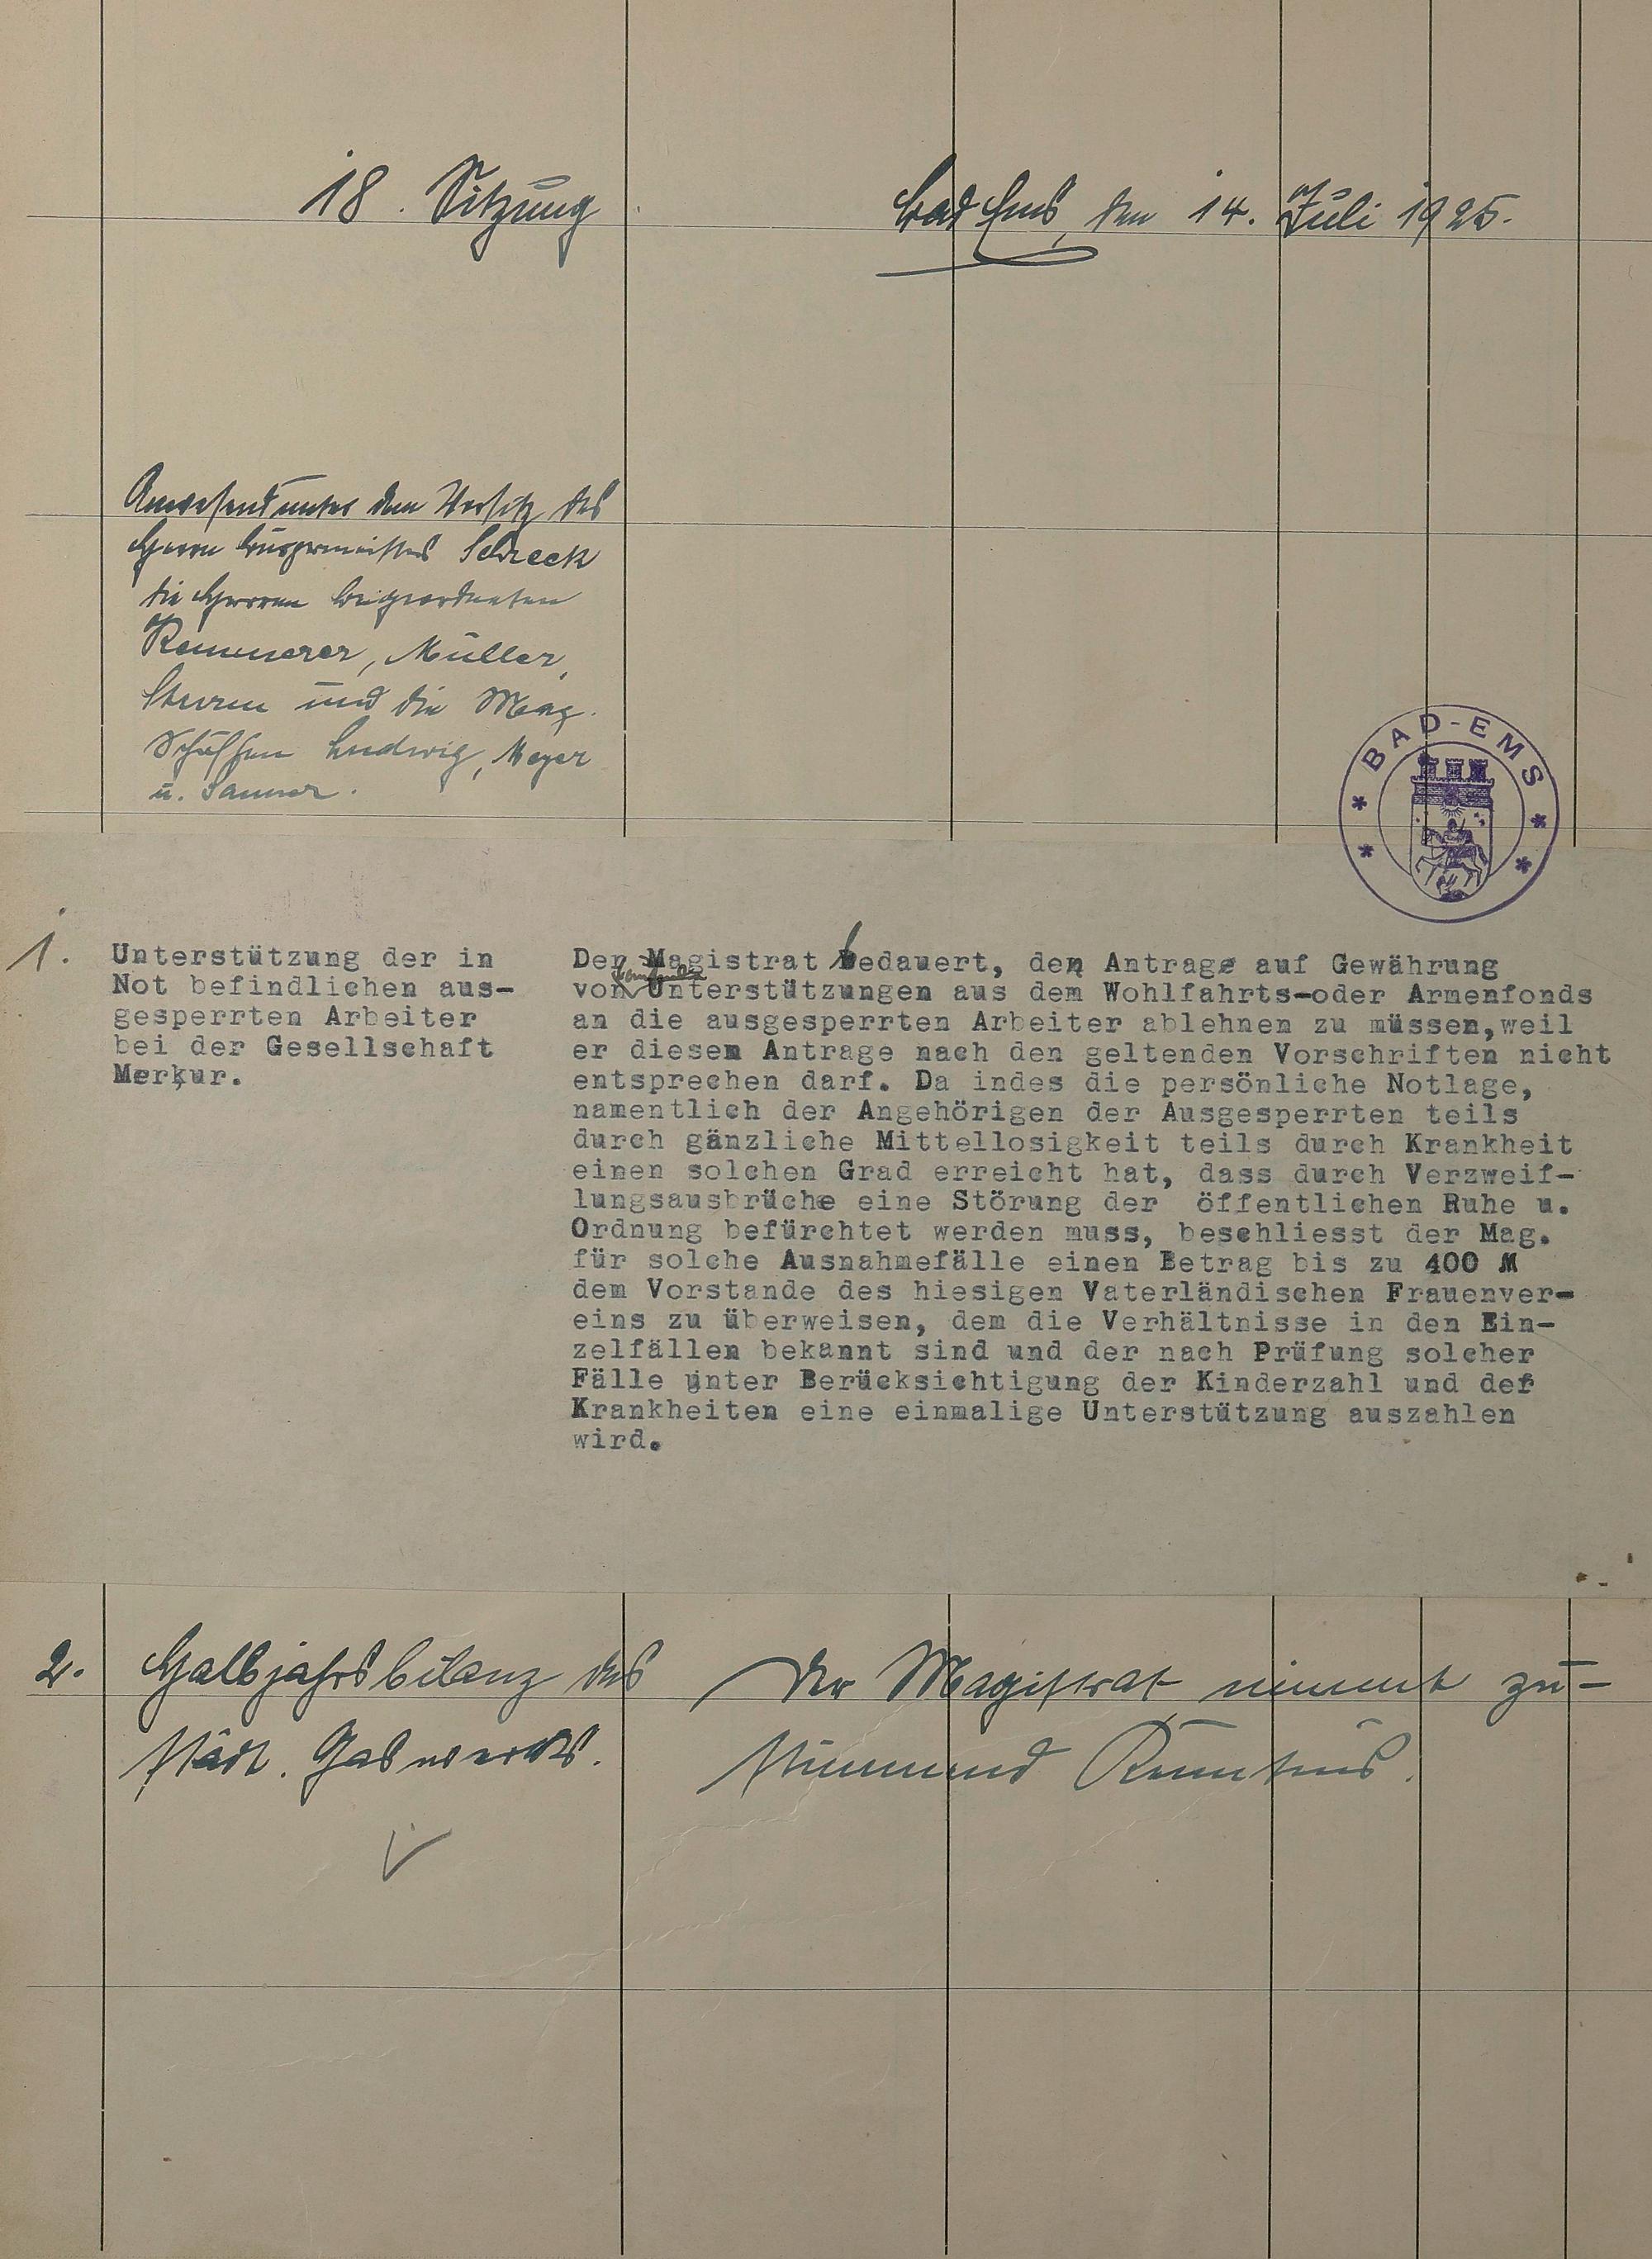 18. Sitzung
Bad Ems, den 14. Juli 1925.
Anwesend unter dem Vorsitz des
Herrn Bürgermeisters Schreck
die Herren Beigeordneten
Kemmerer, Müller,
und die Mag.
Schöffen Ludwig, Meyer
u. Sanner.
BAD-EMS
1.
Unterstützung der in
Not befindlichen aus-
gesperrten Arbeiter
bei der Gesellschaft
Merkur.
Der Magistrat bedauert, den Antrage auf Gewährung
von Unterstützungen aus dem Wohlfahrts-oder Armenfonds
an die ausgesperrten Arbeiter ablehnen zu müssen,weil
er diesem Antrage nach den geltenden Vorschriften nicht
entsprechen darf. Da indes die persönliche Notlage,
namentlich der Angehörigen der Ausgesperrten teils
durch gänzliche Mittellosigkeit teils durch Krankheit
einen solchen Grad erreicht hat, dass durch Verzweif-
lungsausbrüche eine Störung der öffentlichen Ruhe u.
Ordnung befürchtet werden muss, beschliesst der Mag.
für solche Ausnahmefälle einen Betrag bis zu 400 M
dem Vorstande des hiesigen Vaterländischen Frauenver-
eins zu überweisen, dem die Verhältnisse in den Ein-
zelfällen bekannt sind und der nach Prüfung solcher
Fälle unter Berücksichtigung der Kinderzahl und der
Krankheiten eine einmalige Unterstützung auszahlen
wird.
2.
Halbjahrsbilanz des
städt. Gaswerks.
Der Magistrat nimmt zu-
stimmend Kenntnis.